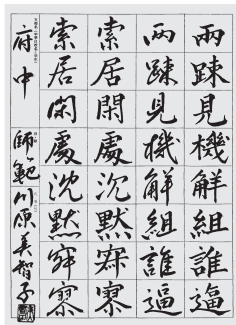 兩踈見機解組誰逼
兩踈見機解組誰逼
索居閑處沈默寂寥
索居閑處沈默寂寥
府中 師範 川原美智子